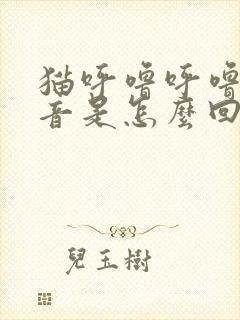 猫呼噜呼噜
音是怎麼回
兒玉樹